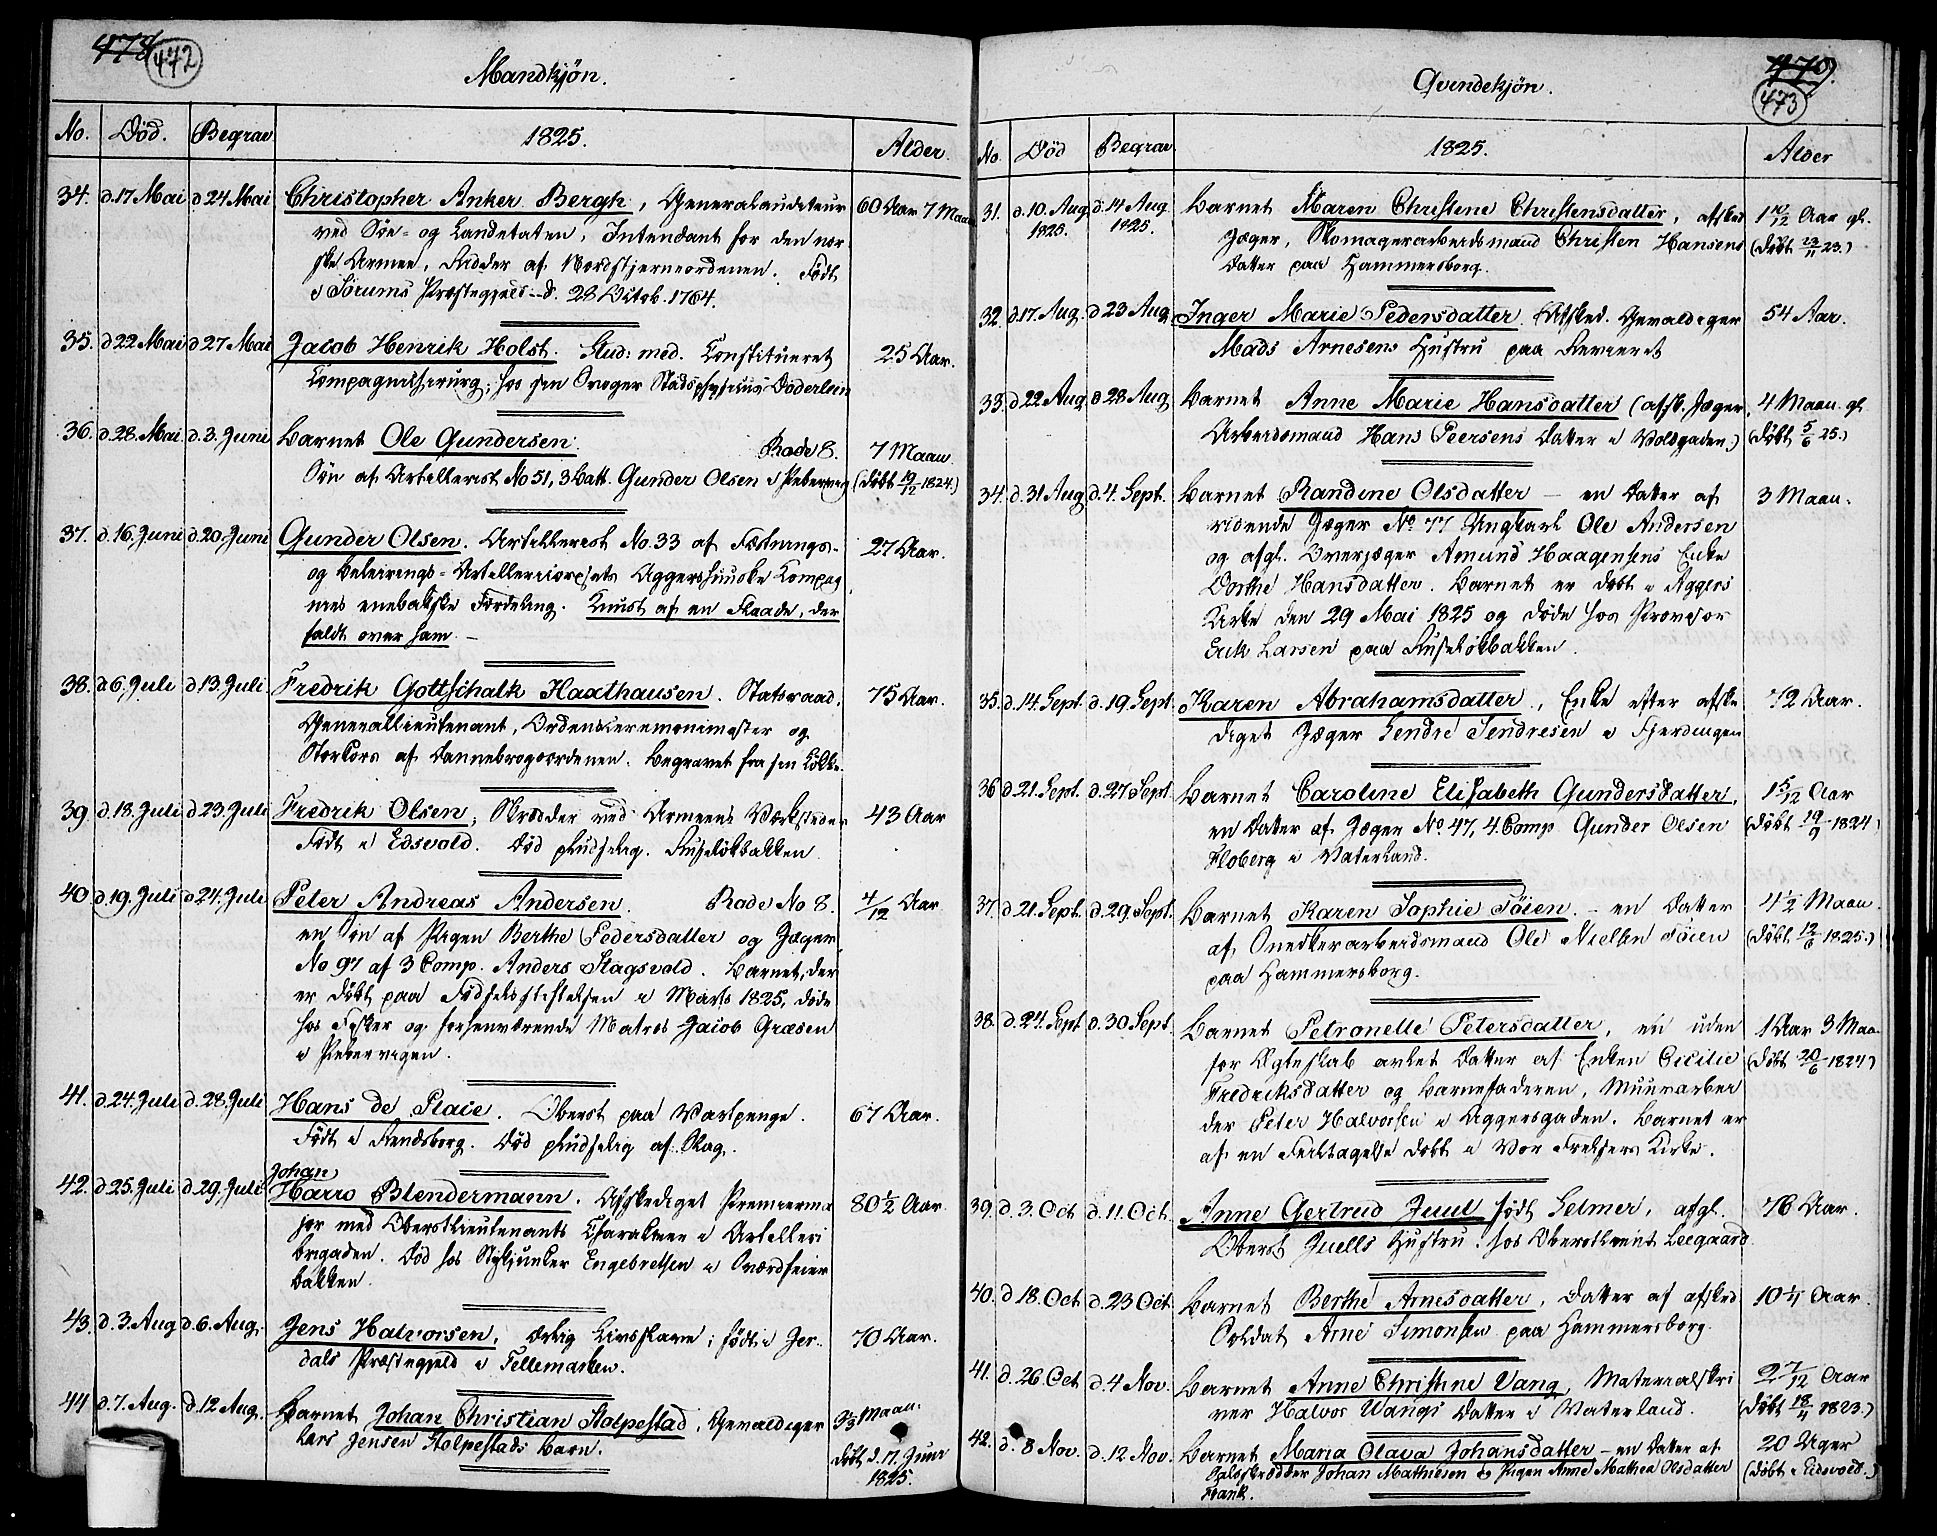 472
Mandkjøn.
No. Død. Begrav. 1825. Alder.
34. d.17 Mai d.24 Mai Christopher Anker Bergh, Generalauditeur 60 Aar 7 Maan
ved Søe- og Landetaten, Intendant for den nor
ske Armee, Ridder af Nordstjerneordenen. Født
i Sørums Præstegjeld d. 28 Octob. 1764.
35. d.22 Mai d.27 Mai Jacob Henrik Holst. Stud: med. Constitueret 25 Aar.
Compagnichirurg, hos sin Svoger Stadsphysicus Døderlein
36. d.28. Mai d.3. Juni Barnet Ole Gundersen. Rode 8. 7 Maan.
Søn af Artillerist No 51, 3 Batt. Gunder Olsen i Pebervig (døbt 19/12 1824.)
37. d.16. Juni d.20. Juni Gunder Olsen. Artillerist No. 33 af Fæstnings- 27 Aar.
og Beleirings-Artilleriecorpsets Aggershuuske Compag
nies enebakske Fordeling. Knust af en Flaade, der
faldt over ham. –
38. d 6. Juli d.13. Juli Fredrik Gottschalk Haxthausen. Statsraad, 75 Aar.
Generallieutenant, Ordensceremonimester og
Storkors af Dannebrogsordenen. Begravet fra sin Løkke.
39 d.18. Juli d.23. Juli Fredrik Olsen, Skrædder ved Armeens Værksteder 43 Aar
Født i Edsvold. Død pludselig. Ruseløkbakken.
40 d.19. Juli d.24. Juli Peter Andreas Andersen. Rode No 8. 4/12 Aar
en Søn af Pigen Berthe Pedersdatter og Jæger
No 97 af 3 Comp. Anders Slagsvold. Barnet, der
er døbt paa Fødselsstiftelsen i Marts 1825, døde
hos Fisker og forhenværende Matros Jacob Græsen
i Pibervigen.
41. d.24. Juli d.28. Juli Hans de Place. Oberst paa Vartpenge. 67 Aar.
Født i Rendsborg. Død pludselig af Slag.
Johan
42. d.25. Juli d.29. Juli Harro Blendermann. Afskediget Premierma 80½ Aar.
jor med Oberstlieutenants Charakteer i Artilleri
brigaden. Død hos Stykjunker Engebretsen i Sværdfeier
bakken.
43. d.3. Aug d.6. Aug. Jens Halvorsen, ærlig Livsslave; født i Jer- 70 Aar.
dals Præstegjeld i Tellemarken.
44 d.7. Aug. d.12 Aug. Barnet Johan Christian Stolpestad, Gevaldiger Maan.
Lars Jensen Stolpestads Barn. døbt d. 17. Juni
1825.
473
Qvindekjøn.
No. Død Begrav. 1825. Alder
31. d.10. Aug. d.14 Aug Barnet Maren Christine Christensdatter, afsked 1 10/12 Aar gl.
1825. 1825. Jæger, Skomagerarbeidsmand Christen Hansens (døbt 23/11 23.)
Datter paa Hammersborg.
32. d.17. Aug. d 23 Aug Inger Marie Pedersdatter. Afsked. Gevaldiger 54 Aar.
Mads Arnesens Hustru paa Revieret
33. d 22 Aug d 28 Aug Barnet Anne Marie Hansdatter (afsk. Jæger, 4 Maan. gl
Arbeidsmand Hans Peersens Datter i Voldgaden.) (døbt 5/6 25.)
34. d.31 Aug d.4. Sept. Barnet Randine Olsdatter – en Datter af 3 Maan.
ridende Jæger No 77 Ungkarl Ole Andersen
og afgl. Overjæger Amund Haagensens Enke
Dorthe Hansdatter. Barnet er døbt i Aggers
Kirke den 29 Mai 1825 og døde hos Provisor
Erik Larsen paa Ruseløkbakken.
35. d.14. Sept. d.19. Sept. Karen Abrahamsdatter, Enke efter afske 72 Aar.
diget Jæger Sendre Sendresen i Fjerdingen
36 d.21. Sept. d.27 Sept Barnet Caroline Elisabeth Gundersdatter, 1 5/12 Aar
en Datter af Jæger No 47, 4. Comp Gunder Olsen (døbt 19/9 1824)
Floberg i Vaterland.
37. d.21. Sept. d.29. Sept. Barnet Karen Sophie Föien. – en Datter 4½ Maan.
af Snedkerarbeidsmand Ole Nielsen Föien (døbt 12/6 1825.)
paa Hammersborg.
38. d.24. Sept d.30 Sept. Barnet Petronelle Petersdatter, en uden 1 Aar 3 Maa
for Ægteskab avlet Datter af Enken Cecilie (døbt 20/6 1824)
Fredriksdatter og Barnefaderen, Muurarbei
der Peter Halvorsen i Aggersgaden. Barnet er
af en Feiltagelse døbt i Vor Frelsers Kirke.
39. d.3. Oct d.11. Oct. Anne Gertrud Juul født Selmer, afgl. 76 Aar.
Oberst Juells Hustru. hos Oberstlieut Leegaard
40. d 18. Oct d.23 Oct. Barnet Berthe Arnesdatter, Datter af afsked 10¼ Aar.
Soldat Arne Simonsen paa Hammersborg.
41. d.26. Oct d.4 Nov. Barnet Anne Christine Vang, Materialskri 2 7/12 Aar
ver Halvor Wangs Datter i Vaterland. (døbt 18/4 1823.)
42. d. 8 Nov. d.12 Nov. Barnet Maria Olava Johansdatter – en Datter af 20 Uger
Johan Mathiesen og Pigen Anne Mathea Olsdatter (døbt i Eidsvold.)
Frank.